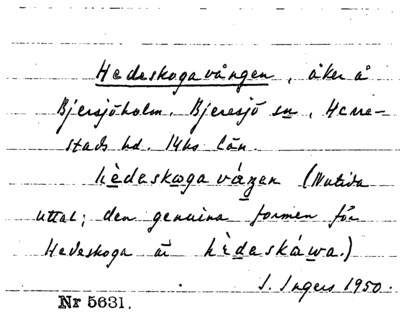 Hedeskogavången, åker å
Bjersjöholm, Bjeresjö sn, Herre-
stads hd. Mhs län.
hèdeskoga våŋen (Nutida
uttal; den genuina formen för
Hedeskoga är hèdeskáwa.)
I. Ingers 1950.
Nr 5631.